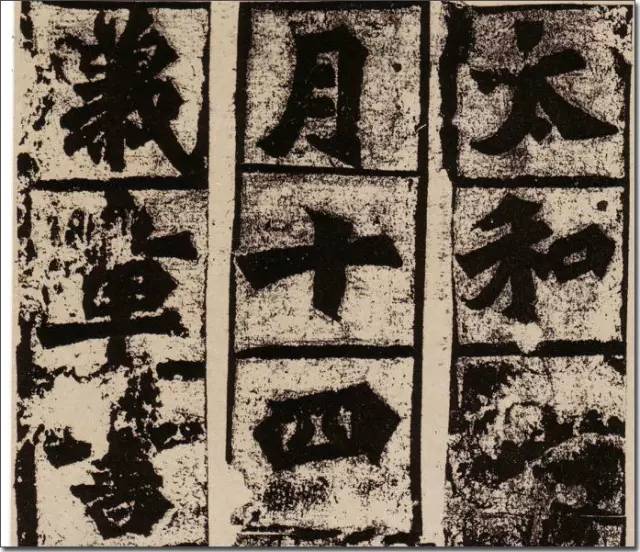 太和
月十四
義章書